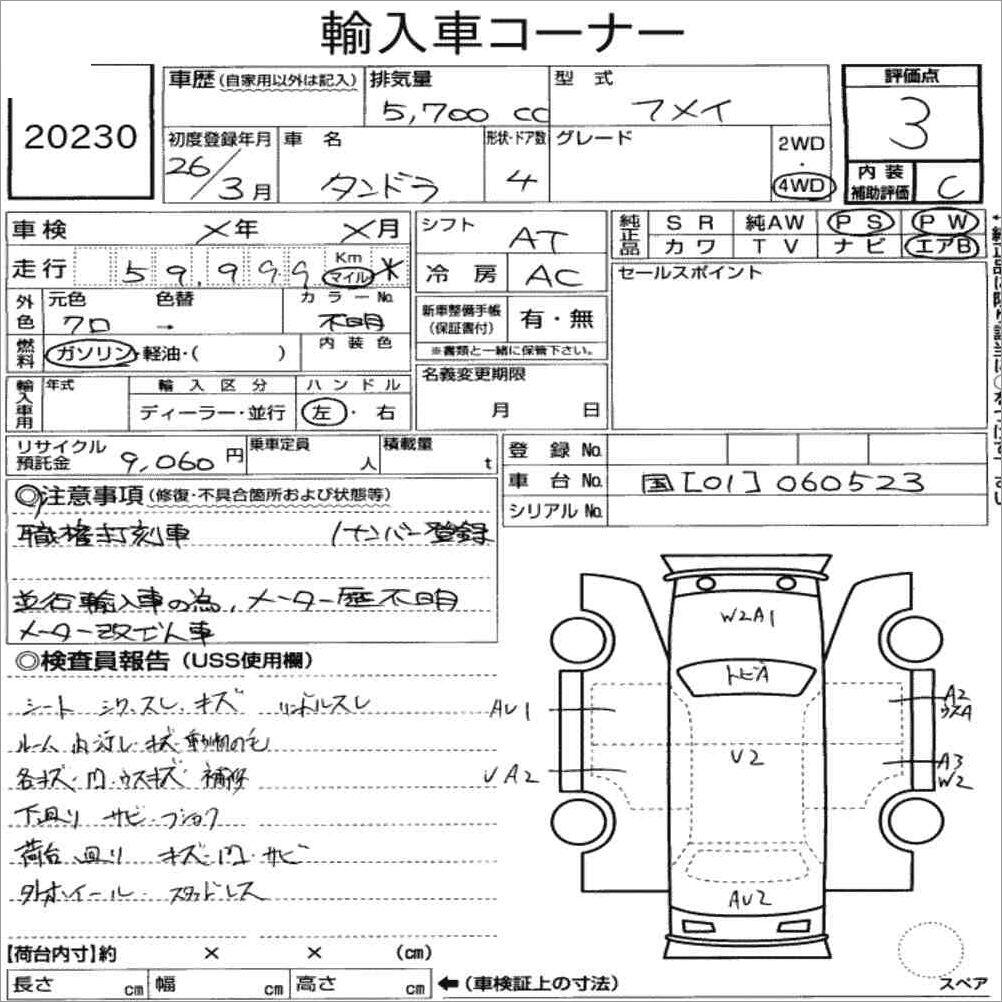 輸入車コーナー
20230
車歴(自家用以外は記入)
排気量
5,700 cc
型 式
フメイ
評価点
3
初度登録年月
26/3月
車 名
タンドラ
形状・ドア数
4
グレード
2WD
・
4WD
内装
補助評価
C
車検 ×年 ×月
走行 59,999 Km マイル *
外色
元色
クロ
色替
→
カラーNo.
不明
燃料
ガソリン・軽油・( )
内装色
輸入車用
年式
輸入区分
ディーラー・並行
ハンドル
左・右
シフト
AT
冷房
AC
新車整備手帳
(保証書付)
有・無
※書類と一緒に保管下さい。
名義変更期限
月 日
純正品
SR 純AW PS PW
カワ TV ナビ エアB
セールスポイント
リサイクル
預託金
9,060円
乗車定員
人
積載量
t
登録No.
車台No.
国[01]060523
シリアルNo.
◎注意事項(修復・不具合箇所および状態等)
職権打刻車 1ナンバー登録
並行輸入車の為、メーター歴不明
メーター改ざん車
◎検査員報告(USS使用欄)
シート シワ.スレ.キズ ハンドルスレ
ルーム内汚レ・キズ・動物の毛
各キズ・凹・ウスキズ 補修
下廻り サビ・フショク
荷台廻り キズ・凹・サビ
外ホイール・スタッドレス
W2A1
トビA
AU1
A2
U2
UA2
A3
W2
AU2
【荷台内寸】約 × × (cm)
長さ cm 幅 cm 高さ cm
←(車検証上の寸法)
スペア